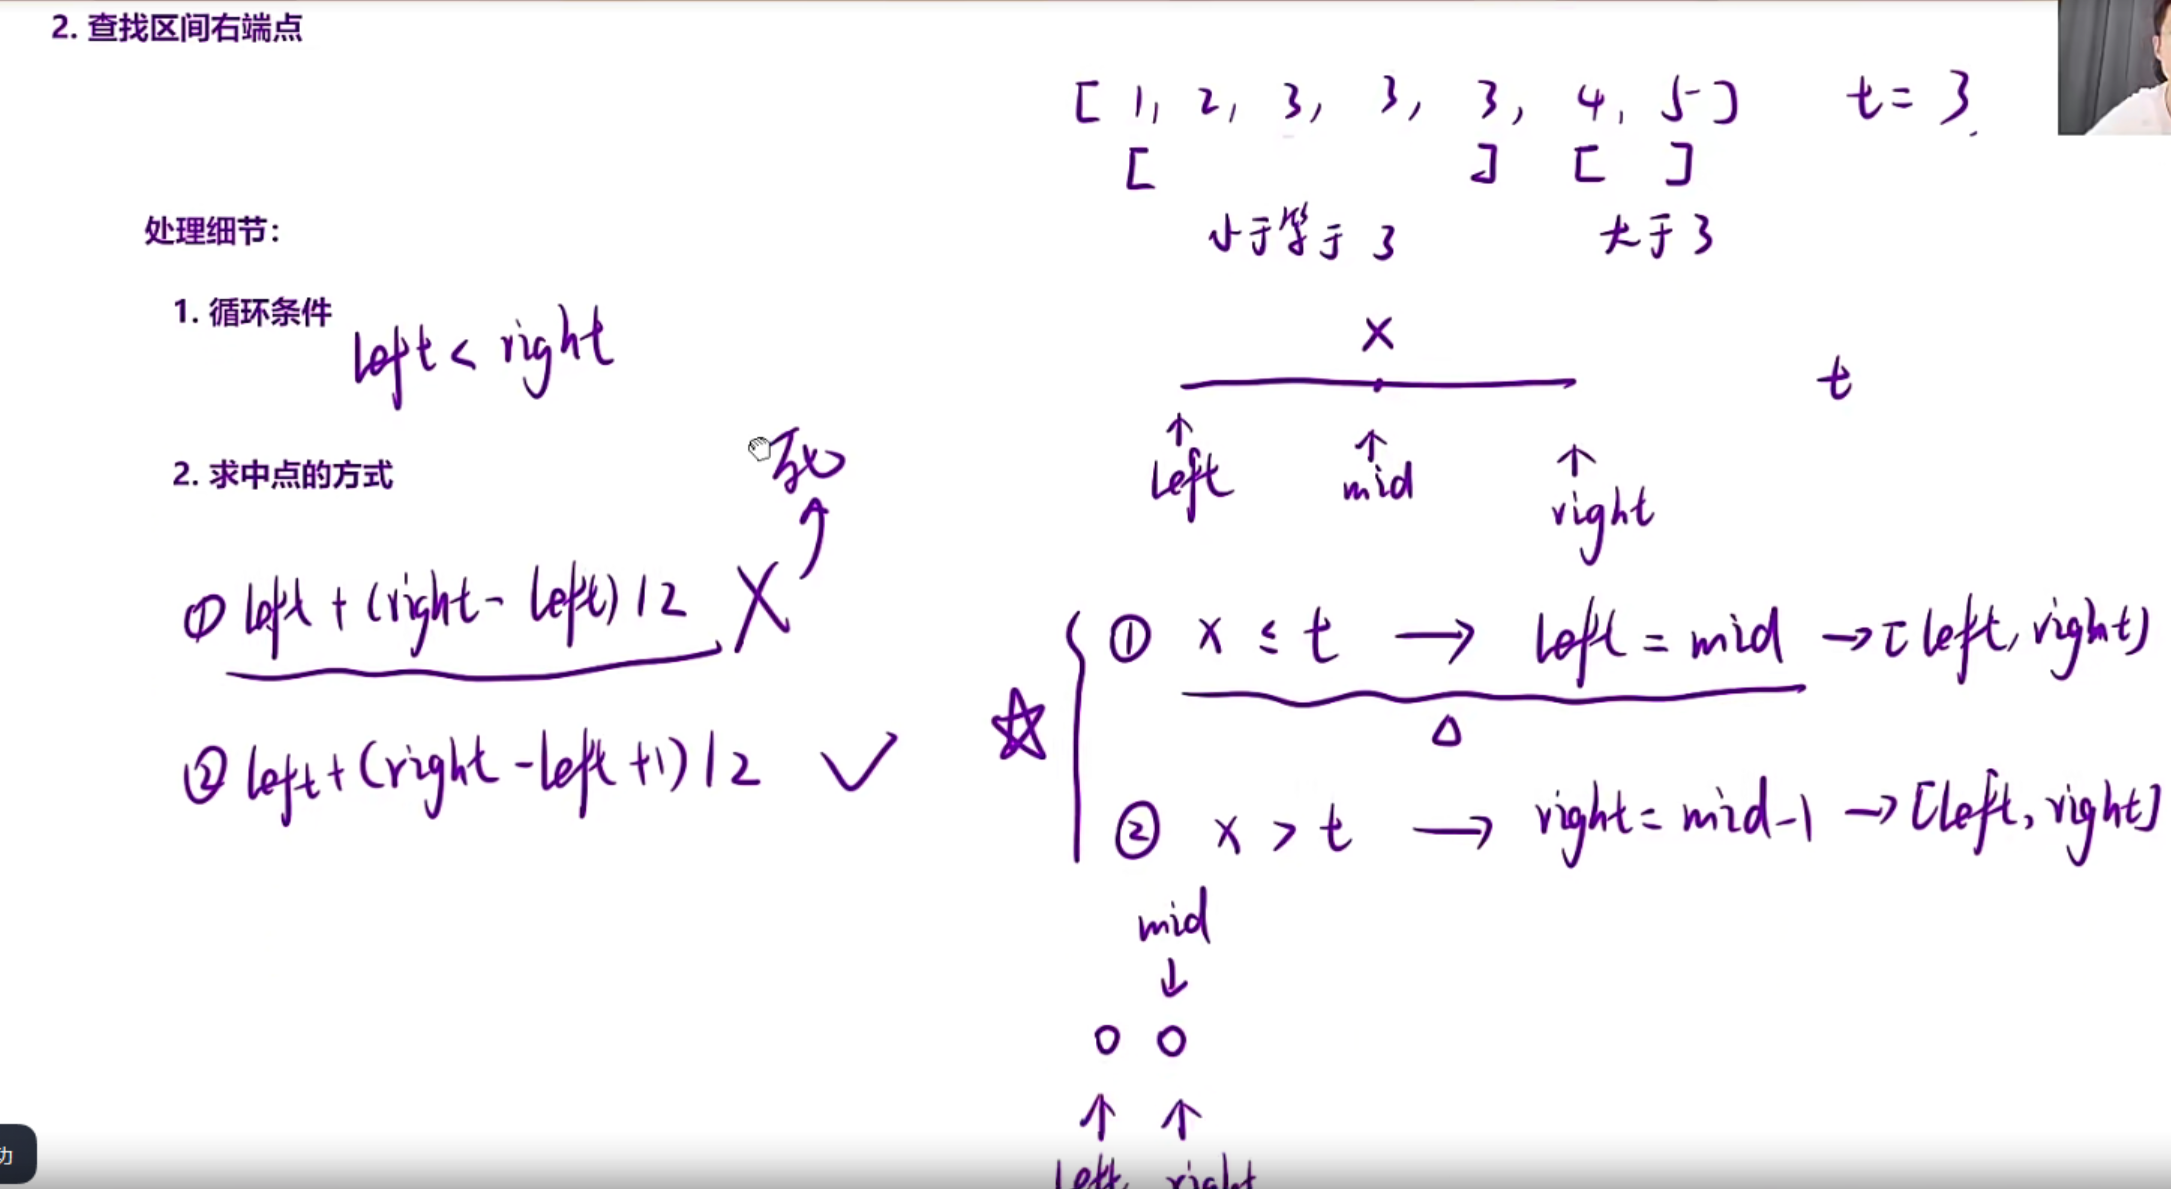 2. 查找区间右端点
[ 1, 2, 3, 3, 3, 4, 5 ] t = 3
[ ] [ ]
小于等于 3 大于 3
处理细节：
1. 循环条件
left < right
x
t
left mid right
2. 求中点的方式
死
① left + (right - left) / 2 X
② left + (right - left + 1) / 2 ✓
☆ { ① x ≤ t → left = mid → [left, right]
△
② x > t → right = mid - 1 → [left, right]
mid
↓
o o
↑ ↑
left right
功